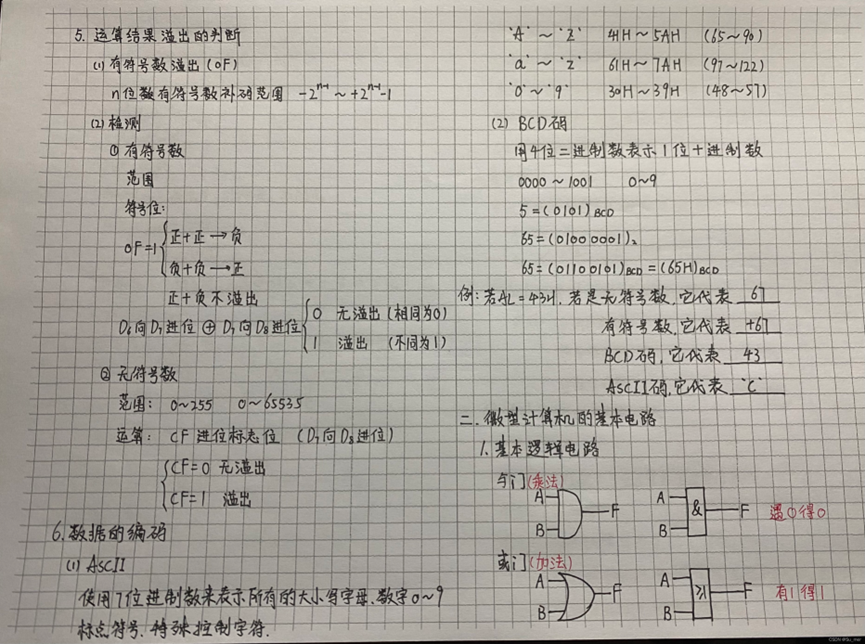 5. 运算结果溢出的判断
(1) 有符号数溢出 (OF)
n位数有符号数补码范围 -2ⁿ⁻¹ ~ +2ⁿ⁻¹-1
(2) 检测
① 有符号数
范围
符号位:
OF=1 { 正+正→负
负+负→正
正+负不溢出
D₆向D₇进位 ⊕ D₇向D₈进位 { 0 无溢出 (相同为0)
1 溢出 (不同为1)
② 无符号数
范围: 0~255 0~65535
运算: CF 进位标志位 (D₇向D₈进位)
{ CF=0 无溢出
CF=1 溢出
6. 数据的编码
(1) ASCII
使用7位进制数来表示所有的大小写字母、数字0~9
标点符号、特殊控制字符.
'A' ~ 'Z' 41H~5AH (65~90)
'a' ~ 'z' 61H~7AH (97~122)
'0' ~ '9' 30H~39H (48~57)
(2) BCD码
用4位二进制数表示1位十进制数
0000 ~ 1001 0~9
5=(0101)BCD
65=(01000001)₂
65=(01100101)BCD=(65H)BCD
例: 若AL=43H, 若是无符号数, 它代表 67
有符号数, 它代表 +67
BCD码, 它代表 43
ASCII码, 它代表 'C'
二. 微型计算机的基本电路
1. 基本逻辑电路
与门(乘法)
A B F A B & F 遇0得0
或门(加法)
A B F A B ≥1 F 有1得1